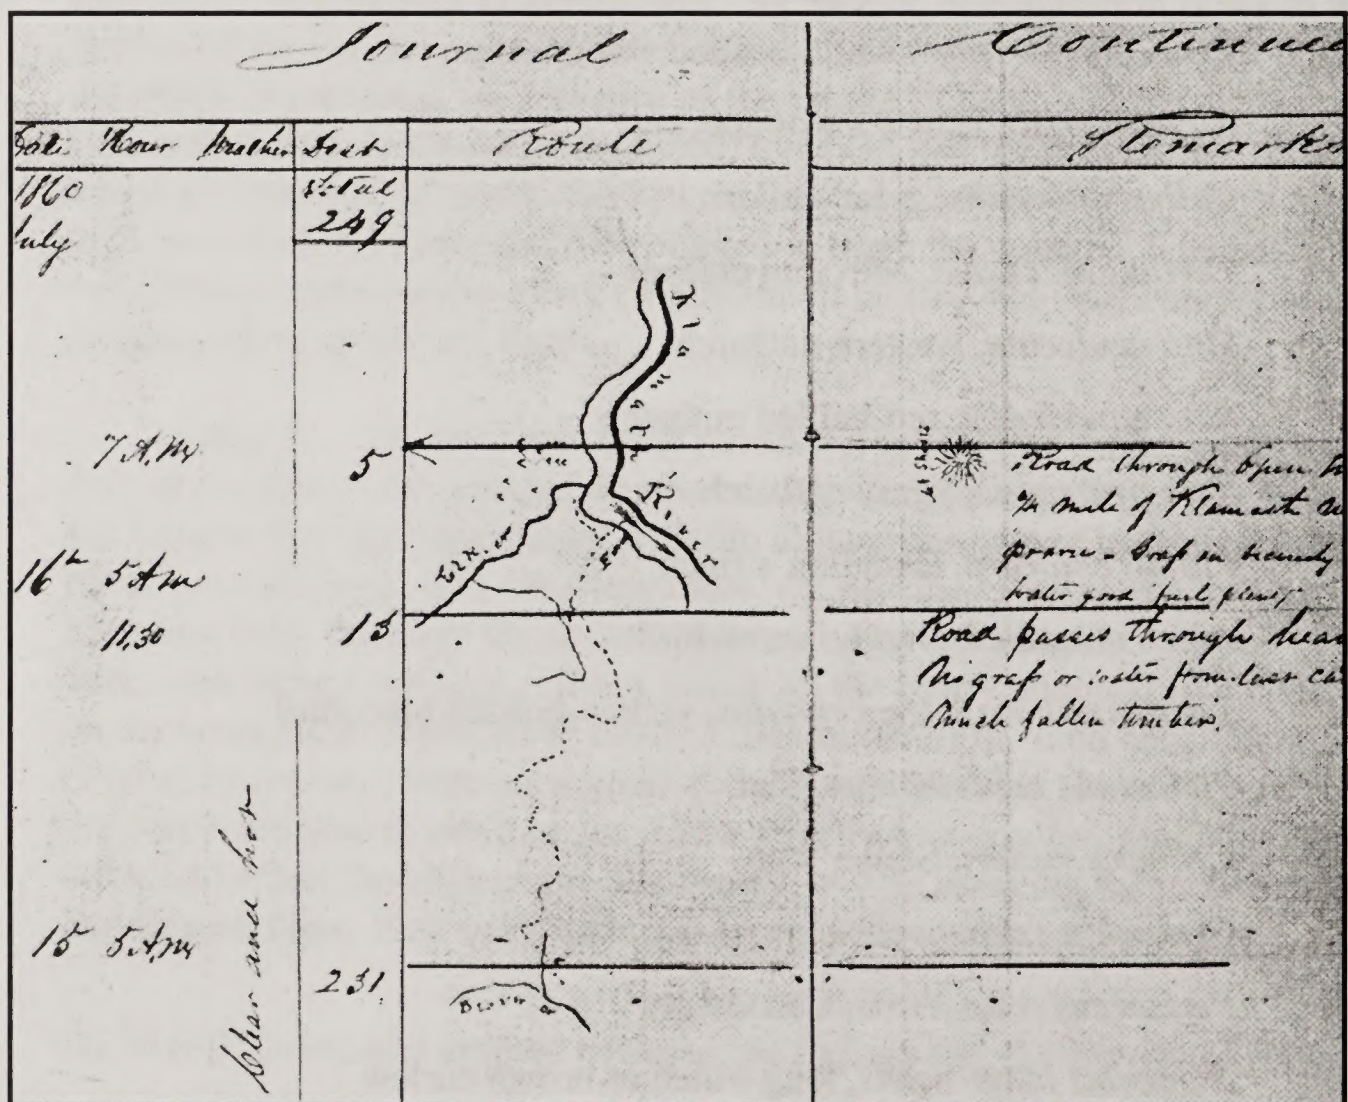 Journal Continued
Date Hour Weather Dist Route Remarks
1860 Total
July 249
Klamath River
7 A.M. 5
Mt Shasta
Road through Open
¾ mile of Klamath
prarie - Grass in
water good fuel plenty
16th 5 A.m
Elk. cr
11.30 13
Road passes through
No grass or water from last
much fallen timber.
Clear and hot
15 5 A.M.
231